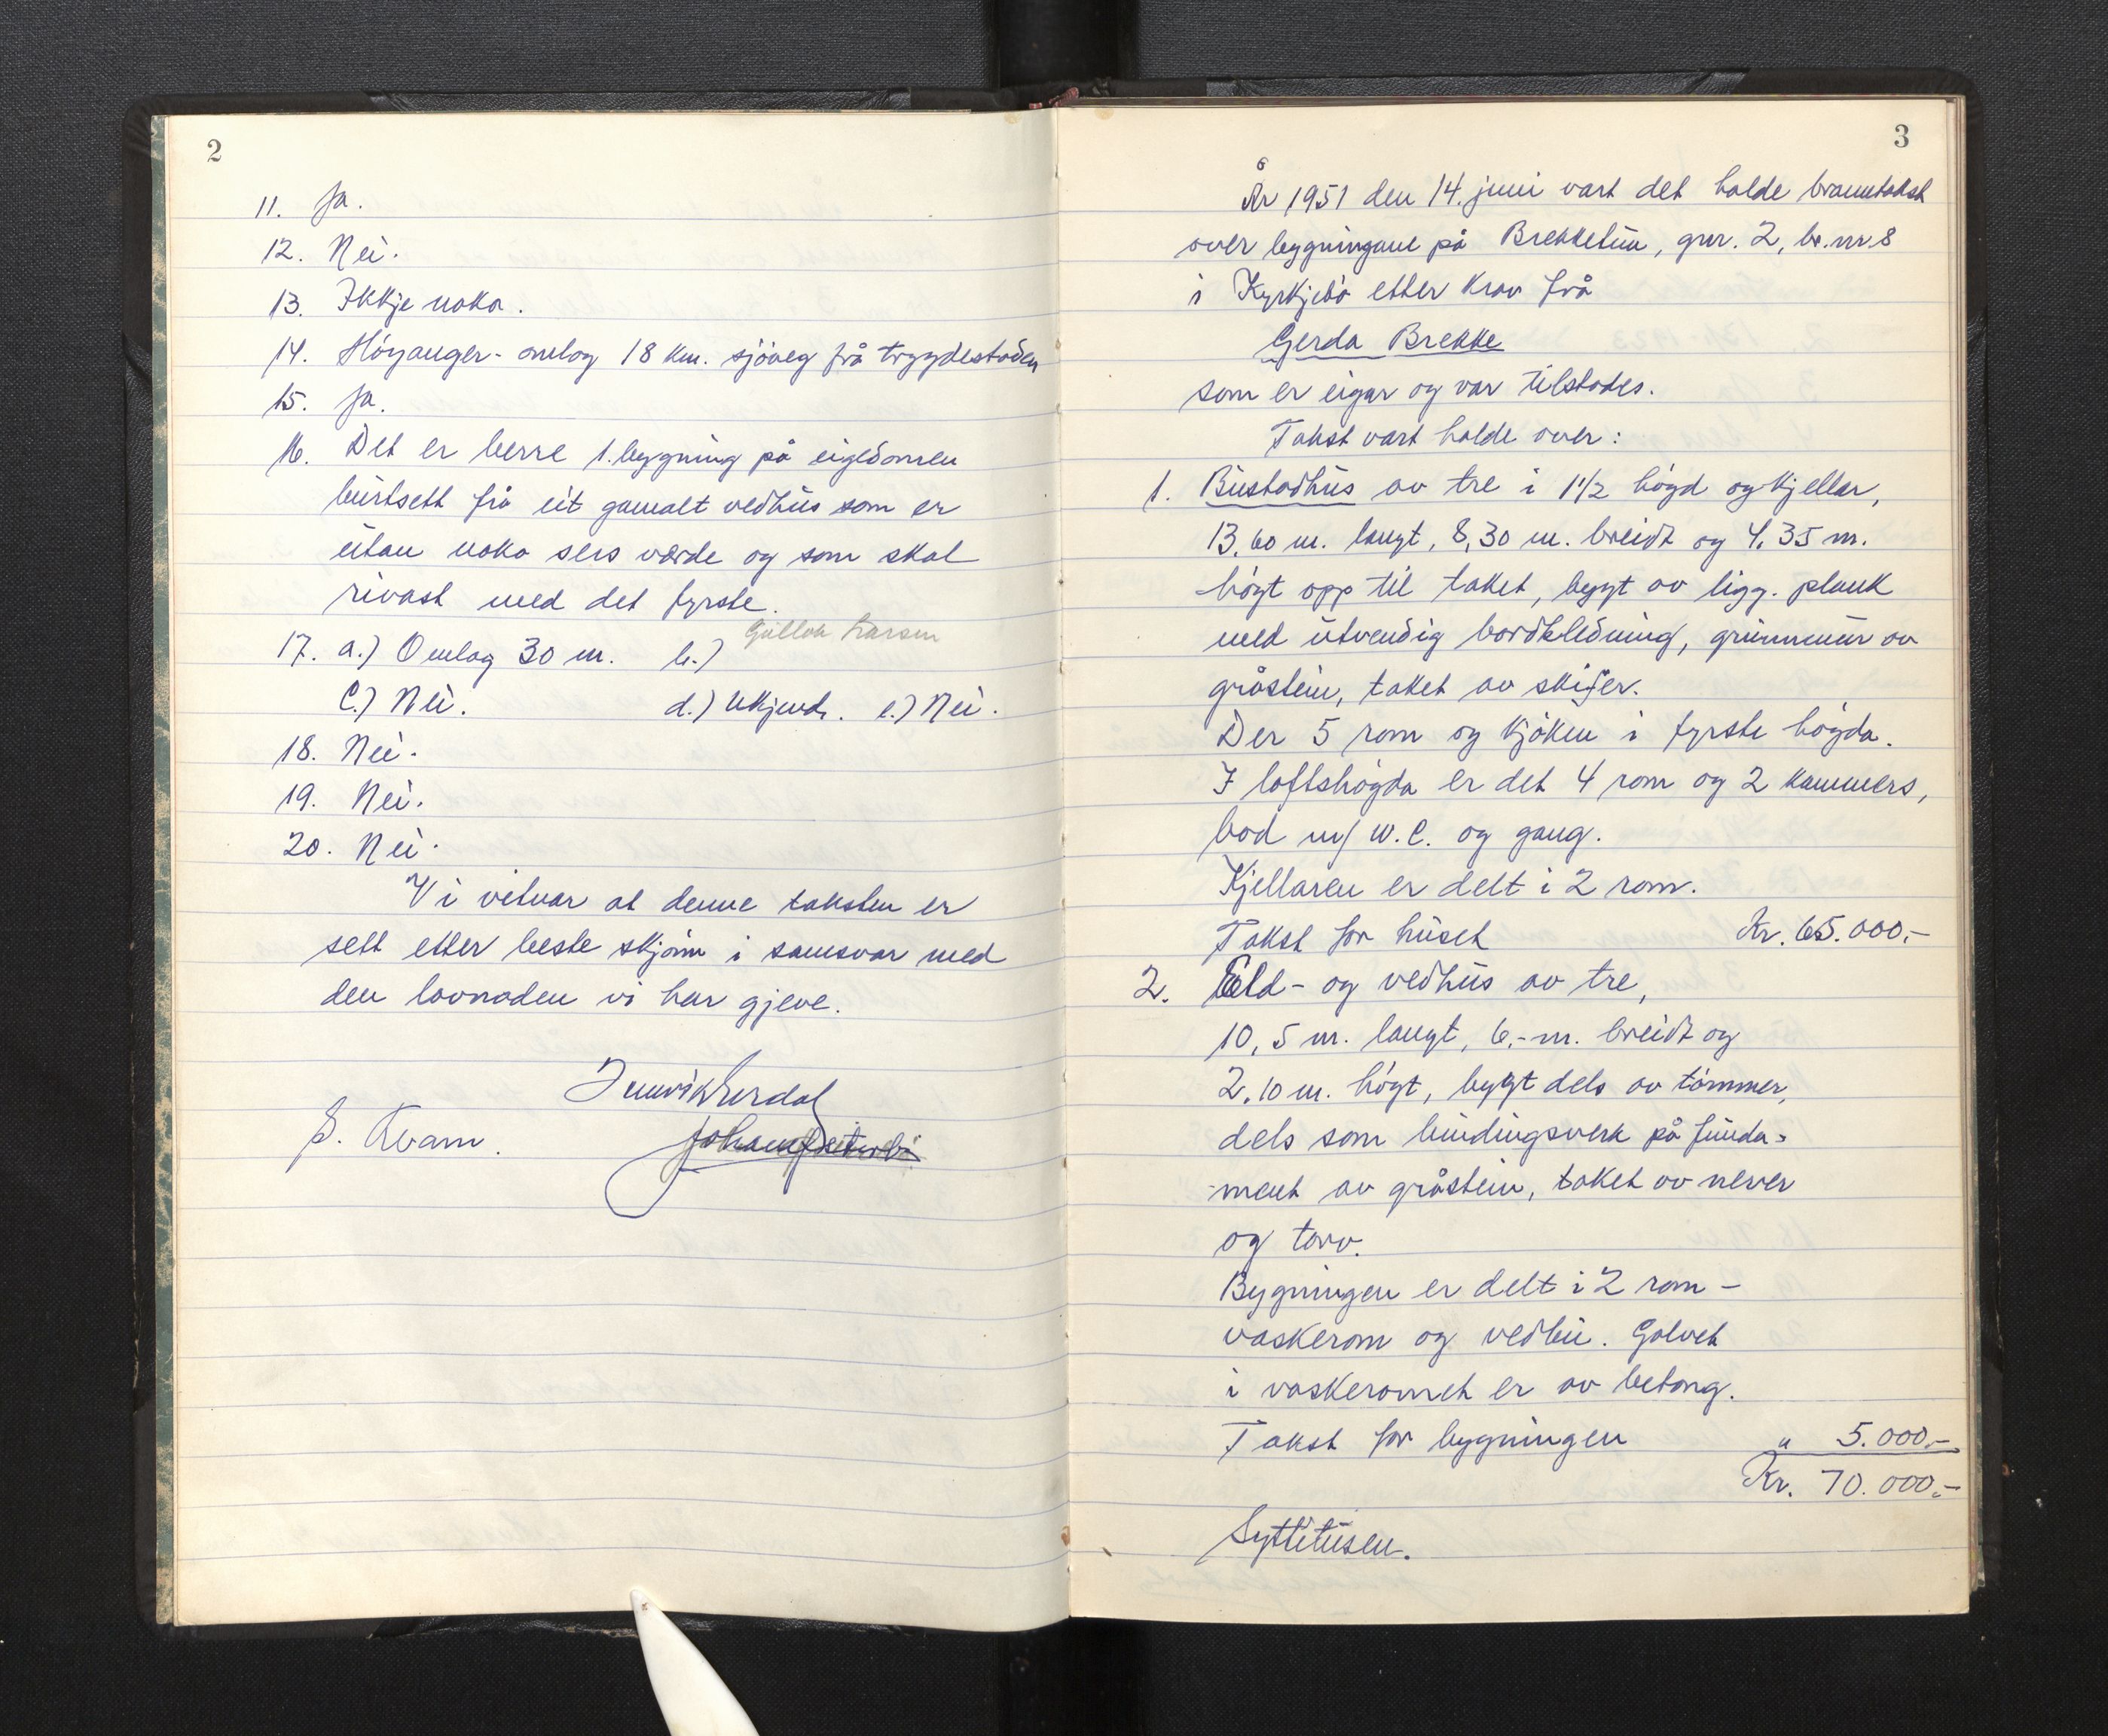 2
11. Ja.
12. Nei.
13. Ikkje noko.
14. Höyanger - omlag 18 km. sjöveg frå trygdestaden
15. Ja.
16. Det er berre 1. bygning på eigedomen
burtsett frå eit gamalt vedhus som er
utan noko sers verde og som skal
rivast med det fyrste.
17. a.) Omlag 30 m. b.) Larsen
C.) Nei. d.) Ukjend. e.) Nei.
18. Nei.
19. Nei.
20. Nei.
Vi vitnar at denne taksten er
sett etter beste skjönn i samsvar med
den lovnaden vi har gjeve.
S. Kvam.
3
År 1951 den 14. juni vart det halde branntakst
over bygningane på Brekketun, gnr. 2, br. nr 8
i Kyrkjebö etter krav frå
Gerda Brekke
som er eigar og var tilstades.
Takst vart halde over:
1. Bustadhus av tre i 1 1/2 högd og kjellar,
13.60 m. langt, 8,30 m. breidt og 4.35 m.
högt opp til taket, bygt av ligg. plank
med utvendig bordkledning, grunnmur av
gråstein, taket av skifer.
Der 5 rom og kjöken i fyrste högda.
I loftshögda er det 4 rom og 2 kammers,
bod m/ W.C. og gang.
Kjellaren er delt i 2 rom.
Takst for huset Kr. 65.000,-
2. Eld- og vedhus av tre,
10,5 m. langt, 6,- m. breidt og
2.10 m. högt, bygt dels av tömmer,
dels som bindingsverk på funda-
ment av gråstein, taket av never
og torv.
Bygningen er delt i 2 rom -
vaskerom og vedbu. Golvet
i vaskeromet er av betong.
Takst for bygningen " 5.000,-
Kr. 70.000,-
Syttitusen.